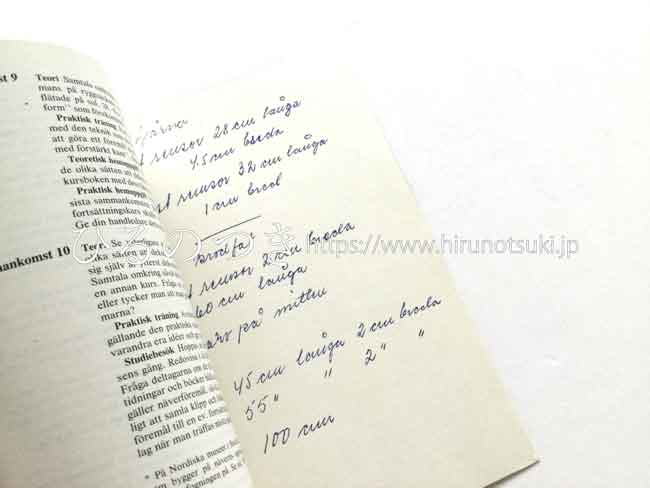 st 9
Teori Samtala
mans på ryggså
flätade på sol
form" som försk
Praktisk träning
med den teknik
att göra ett förem
med förstärkt kan
Teoretisk hemupp
de olika sätten att
kursboken med de
Praktisk hemuppg
sista sammankomst
fortsättningskurs sk
Ge din handledare
nankomst 10
Teori Se
ka säten är de
sig själv är ytterst de
Samtala omkring så
en annan kurs. Fråga
eller tycker man att m
marna?
Praktisk träning
gällande den praktiska
varandra era idéer och
Studiebesök Hoppa
sens gång. Redovisa
Fråga deltagarna om de
tidningar och böcker
gäller näverföremål, en
ligt att samla klipp och
föremål till en ev. forts
lag när man träffas näst
* På Nordiska museet i
om bygger på nävers
remsor 28 cm långa
4,5 cm breda
remsor 32 cm långa
1 cm bred
Brödfat
remsor 2 cm breda
60 cm långa
på mitten
45 cm långa 2 cm breda
55 " " 2 " "
100 cm
ひるのつき https://www.hirunotsuki.jp